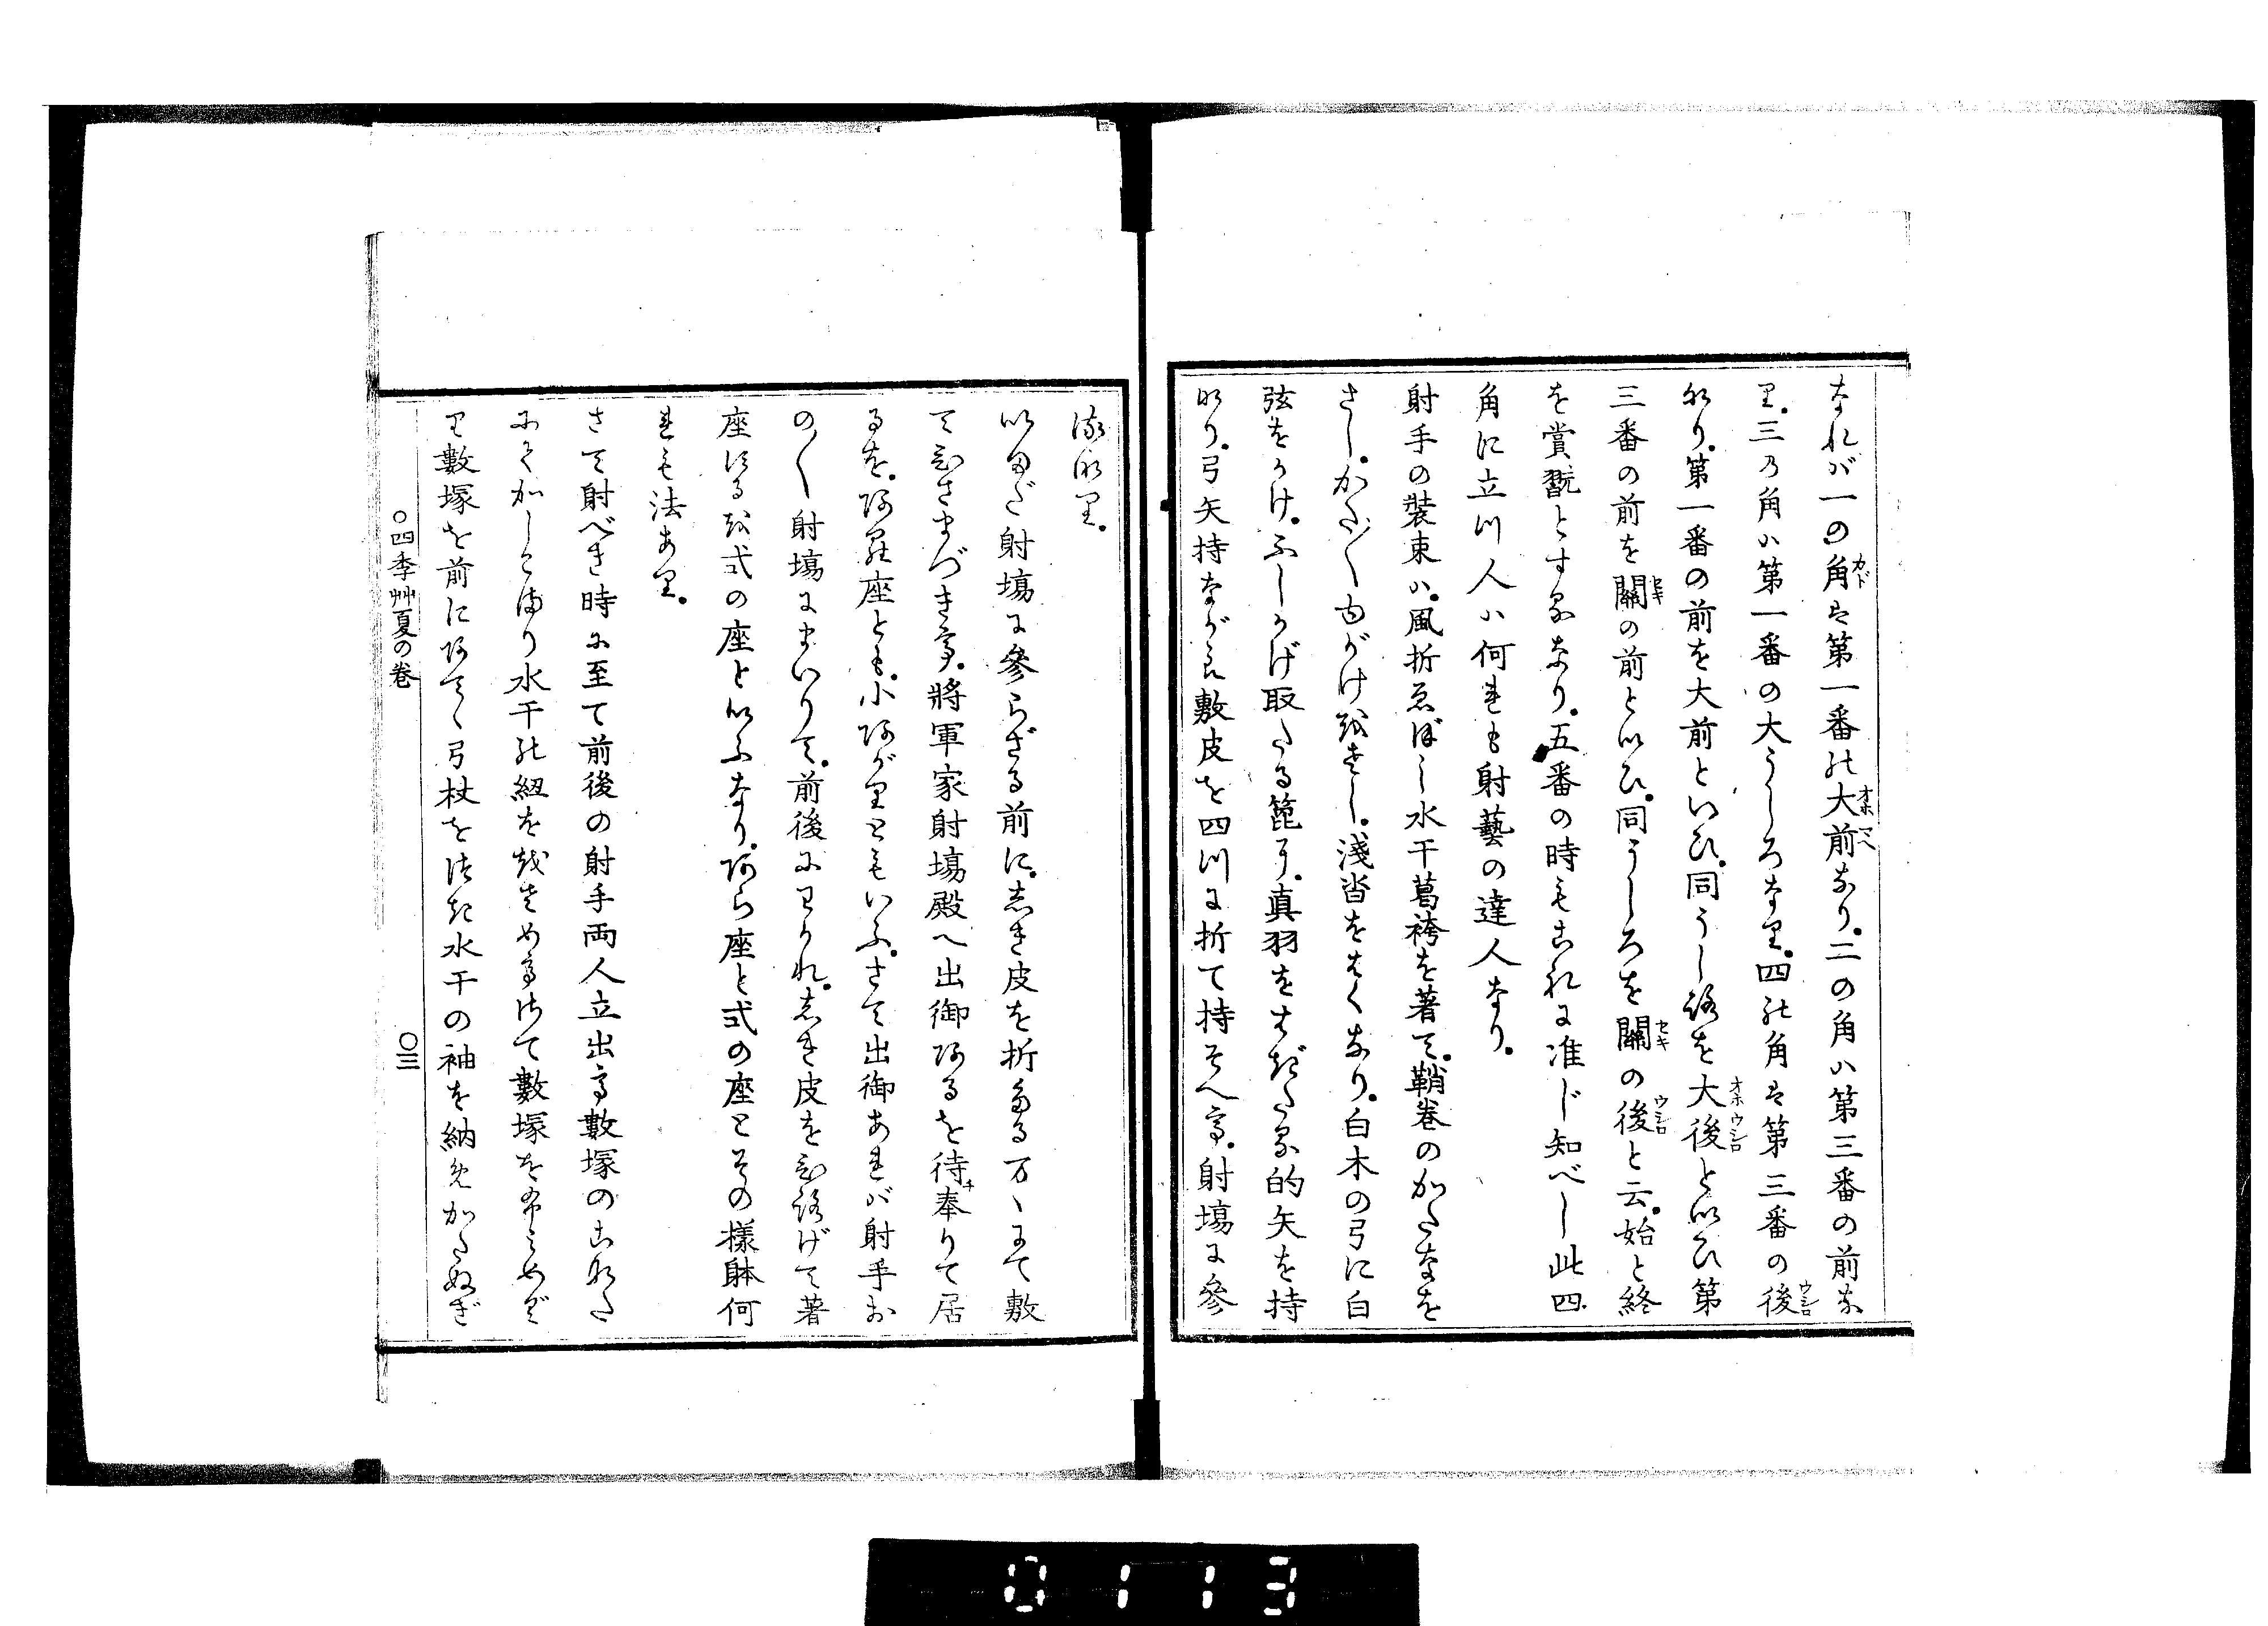 なれバ一の角ハ第一番の大前なり。二の角ハ第三番の前な
り。三の角ハ第一番の大うしろなり。四の角ハ第三番の後
なり。第一番の前を大前といひ。同うしろを大後といひ第
三番の前を關の前といひ。同うしろを關の後と云。始と終
を賞翫とするなり。五番の時もこれに准じ知べし此四
角に立川人ハ何れも射藝の達人なり。
射手の裝束ハ。風折ゑぼし水干葛袴を著て。鞘巻のかたなを
さし。かた〴〵ゆがけをさし。淺沓をはくなり。白木の弓に白
弦をかけ。ふしかげ取たる篦に。真羽をはぎたる的矢を持
なり。弓矢持ながら敷皮を四川に折て持そへて。射塲に參
るなり。
いまだ射塲に參らざる前に。しき皮を折たるまゝにて敷
てひざまづきて。將軍家射塲殿へ出御あるを待奉りて居
るを。あら座とも。小あがりともいふ。さて出御あれバ射手お
の〳〵射塲にまいりて。前後にわかれ。しき皮をひろげて著
座するを式の座といふなり。あら座と式の座とその樣躰何
れも法あり。
さて射べき時に至て前後の射手両人立出て數塚のこなた
にてかしこまり水干の紐をおさめて數塚を
り數塚を前にあてゝ弓杖をつき水干の袖を納めかたぬぎ
○四季艸夏の巻
〇三
0113